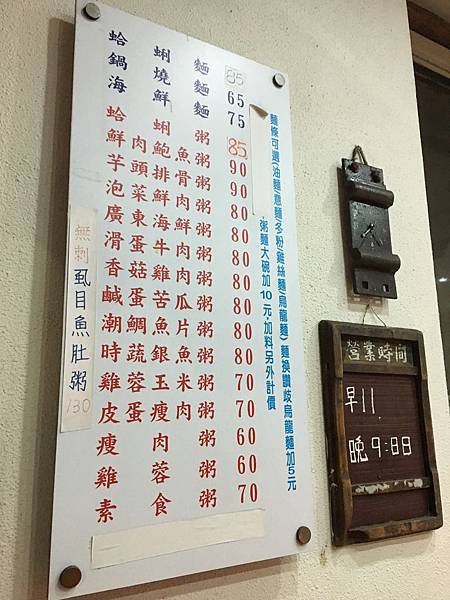 蛤蜊麵 85
鍋燒麵 65
海鮮麵 75
蛤蜊粥 85
鮮肉鮑魚粥 90
芋頭排骨粥 90
泡菜鮮肉粥 80
廣東海鮮粥 80
滑蛋牛肉粥 80
香菇雞肉粥 80
鹹蛋苦瓜粥 80
潮鯛魚片粥 80
時蔬銀魚粥 80
雞蓉玉米粥 70
皮蛋瘦肉粥 70
瘦肉粥 60
雞蓉粥 60
素食粥 70
麵條可選(油麵/意麵/冬粉/雞絲麵/烏龍麵) 麵換讚岐烏龍麵加5元
·粥麵大碗加10元,加料另外計價
無刺虱目魚肚粥 130
營業時間
早11
晚9:00